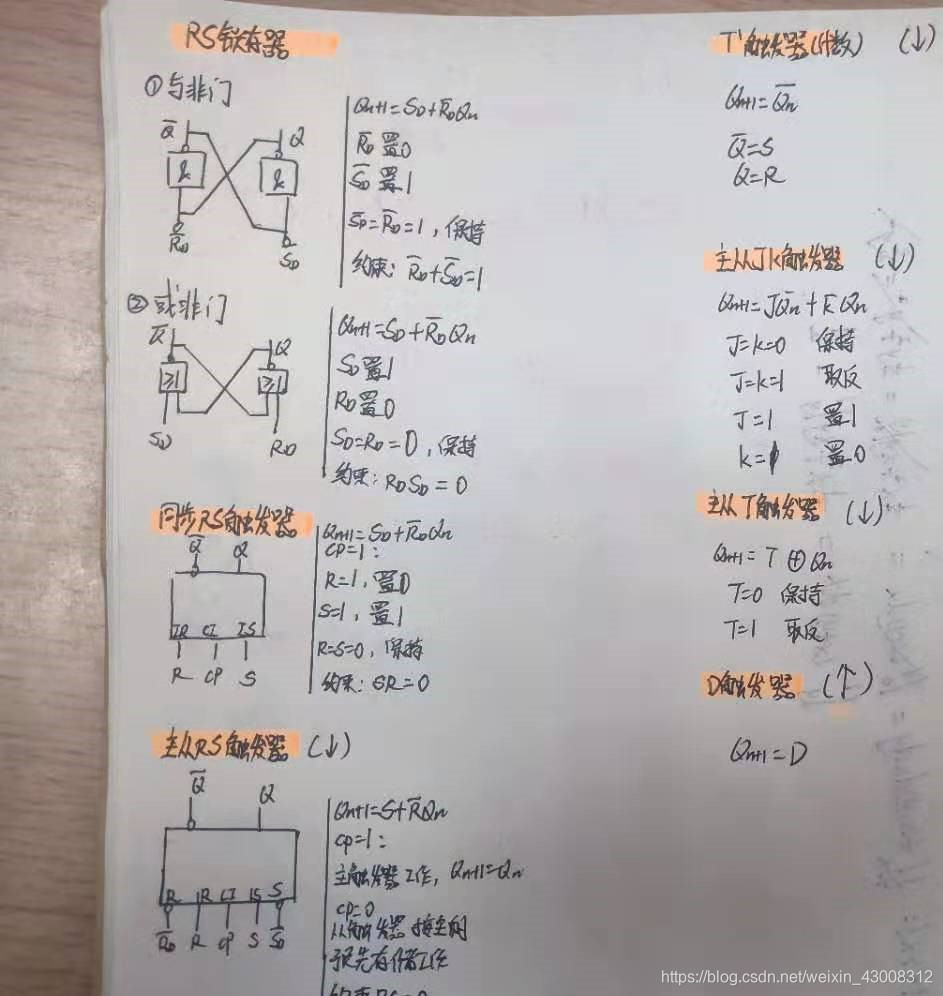 RS锁存器
①与非门
Q̅ Q
& &
R̅D S̅D
Qn+1=SD+R̅DQn
R̅D 置0
S̅D 置1
S̅D=R̅D=1，保持
约束：R̅D+S̅D=1
②或非门
Q̅ Q
≥1 ≥1
SD RD
Qn+1=SD+R̅DQn
SD置1
RD置0
SD=RD=0，保持
约束：RDSD=0
同步RS触发器
Q̅ Q
1R C1 1S
R CP S
Qn+1=SD+R̅DQn
CP=1：
R=1，置0
S=1，置1
R=S=0，保持
约束：SR=0
主从RS触发器 (↓)
Q̅ Q
R 1R C1 1S S
R̅D R CP S S̅D
Qn+1=S+R̅Qn
CP=1：
主触发器工作，Qn+1=Qn
CP=0
从触发器
预先存储工作
T'触发器(计数) (↓)
Qn+1=Q̅n
Q̅=S
Q=R
主从JK触发器 (↓)
Qn+1=JQ̅n+K̅Qn
J=K=0 保持
J=K=1 取反
J=1 置1
K=1 置0
主从T触发器 (↓)
Qn+1=T⊕Qn
T=0 保持
T=1 取反
D触发器 (↑)
Qn+1=D
https://blog.csdn.net/weixin_43008312